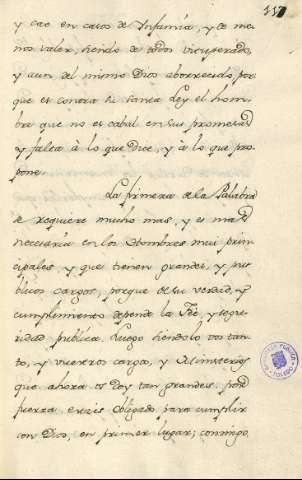 117
y cae en casos de Infamia, y de me
nos valer, siendo de todos vituperado,
y aun del mismo Dios aborrecido por
que es contra su santa Ley el hom
bre que no es cabal en sus promesas
y falta à lo que Dice, y à lo que pro
pone.
La firmeza de la Palabra
se requiere mucho mas, y es mas
necesaria en los Hombres mui prin
cipales, y que tienen grandes, y pu
blicos cargos, porque de su verdad, y
cumplimiento depende la Fee, y segu
ridad publica. Luego siendolo vos tan
to, y vuestros cargos, y Ministerios
que ahora os doy tan grandes, por
fuerza estais obligado para cumplir
con Dios, en primer lugar; conmigo
BIBLIOTECA PUBLICA
TOLEDO